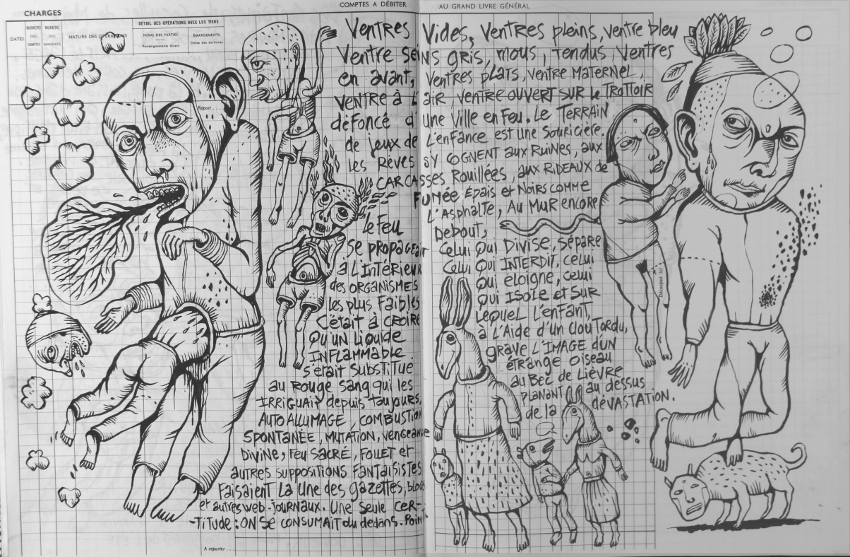 CHARGES
COMPTES A DÉBITER
AU GRAND LIVRE GÉNÉRAL
DÉTAIL DES OPÉRATIONS AVEC LES TIERS
DATES
NATURE DES OPÉRATIONS
Report
Ventres Vides, Ventres pleins, ventre bleu
Ventre sens gris, mous, tendus, Ventres
en avant, Ventres plats, ventre maternel,
Ventre à l'air, ventre ouvert sur le trottoir
défoncé d'une ville en feu. Le terrain
de jeux de l'enfance est une souricière.
les Rêves s'y cognent aux Ruines, aux
CARCASSES Rouillées, aux Rideaux de
FUMÉE Épais et Noirs comme
L'Asphalte, Au MUR encore
Debout,
Celui qui Divise, sépare
Celui qui INTERDIT, celui
qui éloigne, celui
qui Isole et sur
Lequel L'enfant,
à L'Aide d'un clou tordu,
grave L'IMAGE d'un
étrange oiseau
au Bec de Lièvre
PLANANT au dessus
de la dévastation.
le feu
se propageait
à l'Intérieur
des ORGANISMES
les plus faibles
C'était à CROIRE
Qu'un Liquide
INFLAMMABLE
s'était substitué
au Rouge sang qui les
IRRIGUAIT depuis toujours,
AUTO ALLUMAGE, COMBUSTION
SPONTANÉE, MUTATION, vengeance
Divine, feu SACRÉ, FOLLET et
autres suppositions fantaisistes
faisaient La Une des gazettes, blogs
et autres web-journaux. Une seule CER-
-TITUDE: ON SE CONSUMAIT du dedans.
A reporter